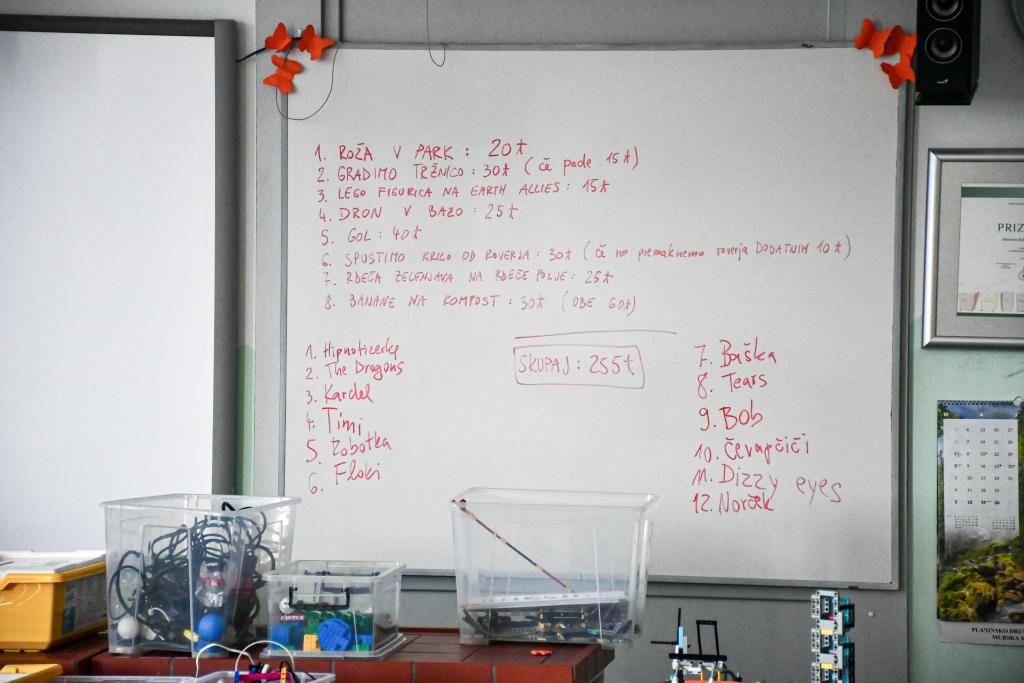 1. ROŽA V PARK : 20t
2. GRADIMO TRŽNICO : 30t (če pade 15t)
3. LEGO FIGURICA NA EARTH ALLIES : 15t
4. DRON V BAZO : 25t
5. GOL : 40t
6. SPUSTIMO KRILO OD ROVERJA : 30t (če ne premaknemo roverja DODATNIH 10t)
7. RDEČA ZELENJAVA NA RDEČE POLJE : 25t
8. BANANE NA KOMPOST : 30t (OBE 60t)
SKUPAJ : 255t
1. Hipnotizerke
2. The Dragons
3. Kardel
4. Timi
5. Robotka
6. Floki
7. Baška
8. Tears
9. Bob
10. Čevapčiči
11. Dizzy eyes
12. Norček
PRIZ
PLANINSKO DRU
MURSKA S